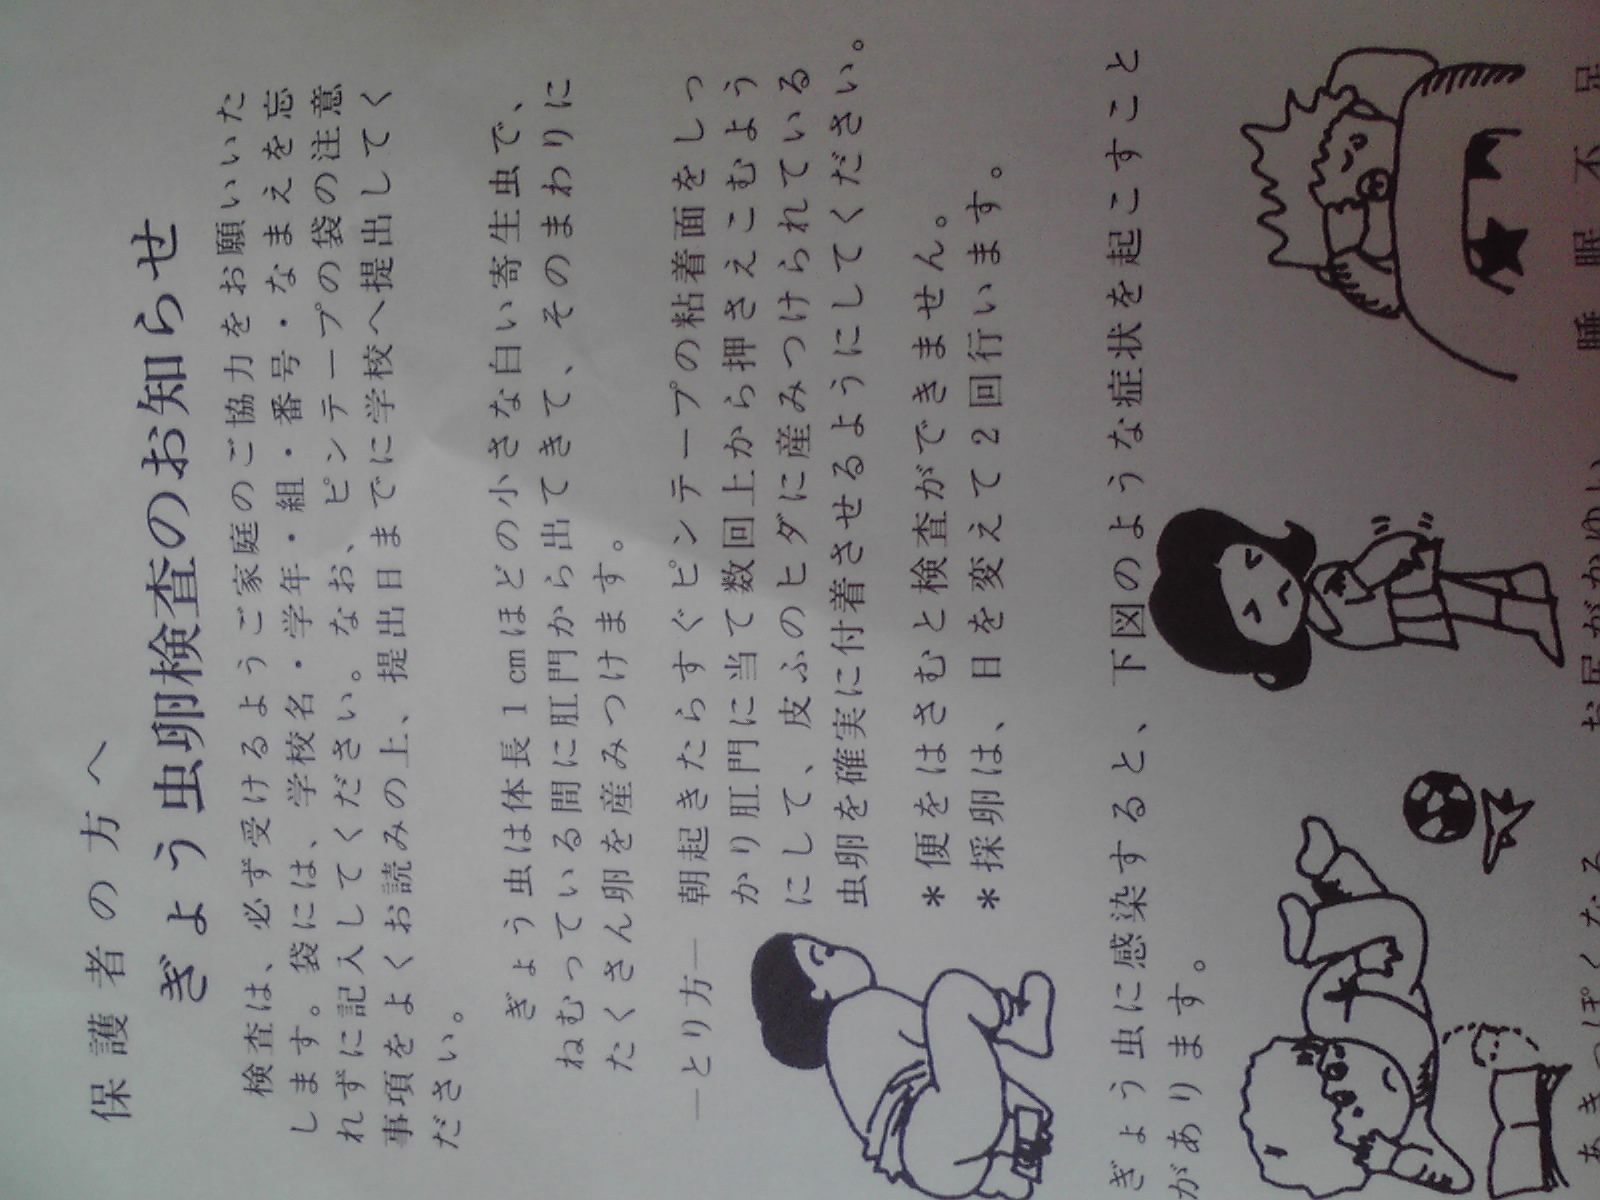 保護者の方へ
ぎょう虫卵検査のお知らせ
検査は、必ず受けるようご家庭のご協力をお願いいた
します。袋には、学校名・学年・組・番号・なまえを忘
れずに記入してください。なお、ピンテープの袋の注意
事項をよくお読みの上、提出日までに学校へ提出してく
ださい。
ぎょう虫は体長1cmほどの小さな白い寄生虫で、
ねむっている間に肛門から出てきて、そのまわりに
たくさん卵を産みつけます。
―とり方―
朝起きたらすぐピンテープの粘着面をしっ
かり肛門に当て数回上から押さえこむよう
にして、皮ふのヒダに産みつけられている
虫卵を確実に付着させるようにしてください。
＊便をはさむと検査ができません。
＊採卵は、日を変えて2回行います。
ぎょう虫に感染すると、下図のような症状を起こすこと
があります。
あきっぽくなる
お尻がかゆい
睡眠不足